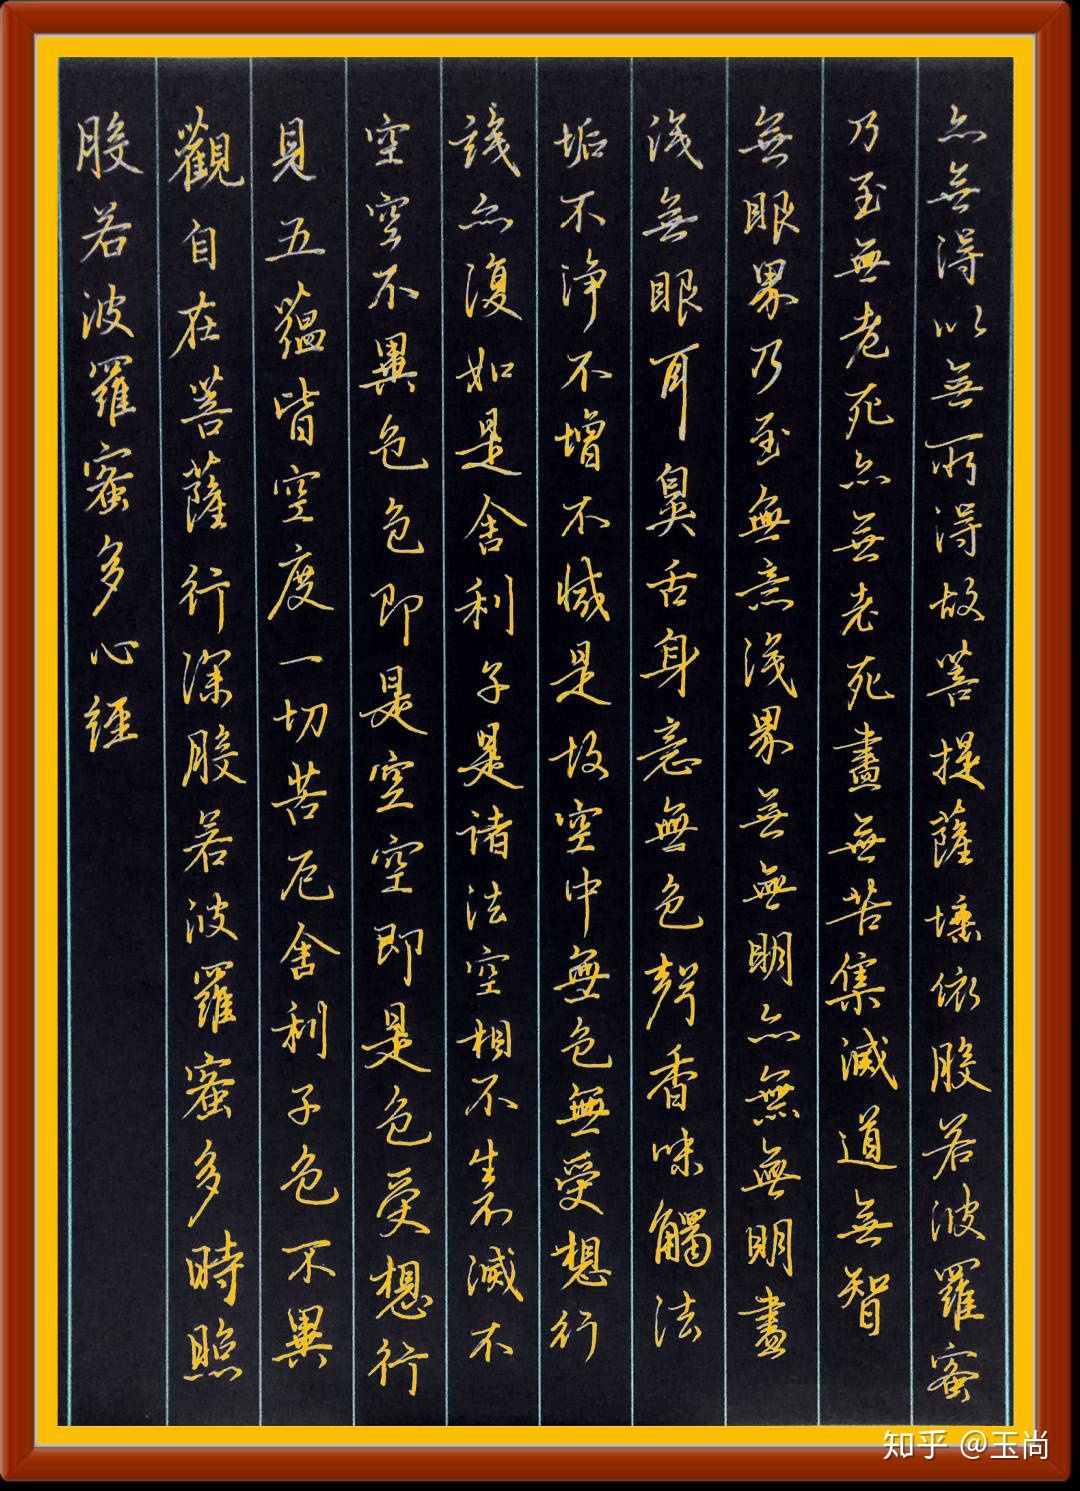 般若波羅蜜多心經
觀自在菩薩行深般若波羅蜜多時照
見五蘊皆空度一切苦厄舍利子色不異
空空不異色色即是空空即是色受想行
識亦復如是舍利子是諸法空相不生不滅不
垢不淨不增不減是故空中無色無受想行
識無眼耳鼻舌身意無色聲香味觸法
無眼界乃至無意識界無無明亦無無明盡
乃至無老死亦無老死盡無苦集滅道無智
亦無得以無所得故菩提薩埵依般若波羅蜜
知乎 @玉尚